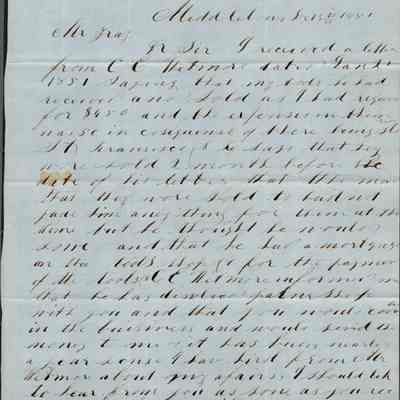 Mr Gray
Dr Sir I received a letter
from C C Wetmore dated Jan
1851 saying that my tools he had
received and sold as I had
for $450 and the expenses on them
in consequence of there being
St Francisco he says that they
were sold 2 months before the
date of his letter that the man
that they were sold to had not
paid him any thing for them at the
time but he thought he would
some and that he had a mortgage
on the tools for the paymen
of the tools C C Wetmore informed me
that he has disolved partner ship
with you and that you would
in the buisness and would send the
money to me it has been nearly
a year sense I have hird from Mr
Wetmore about my afairs I should lik
to hear from you as sone as you